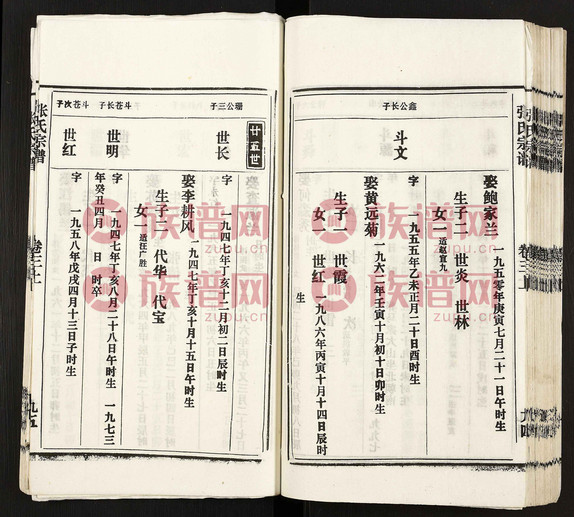 娶鲍家兰 一九五零年庚寅七月二十一日午时生
生子二 世炎 世林
女一 适赵宜九
鑫公长子
斗文
字 一九五五年乙未正月二十日酉时生
娶黄远菊 一九六二年壬寅十月初十日卯时生
生子一 世霞
女一 世红 一九八六年丙寅十月十四日辰时
生
张氏宗谱
卷三上
九四
廿五世
珊公三子
世长
字 一九四七年丁亥十二月初二日辰时生
娶李耕风 一九四七年丁亥十月十五日午时生
生子二 代华 代宝
女一 适汪广胜
斗苍长子
世明
字 一九四七年丁亥八月二十八日午时生 一九七三
年癸丑四月 日 时卒
斗苍次子
世红
字 一九五八年戊戌四月十三日子时生
张氏宗谱
卷三上
九五
族谱网
zupu.cn
族谱网
zupu.cn
族谱网
zupu.cn
族谱网
zupu.cn